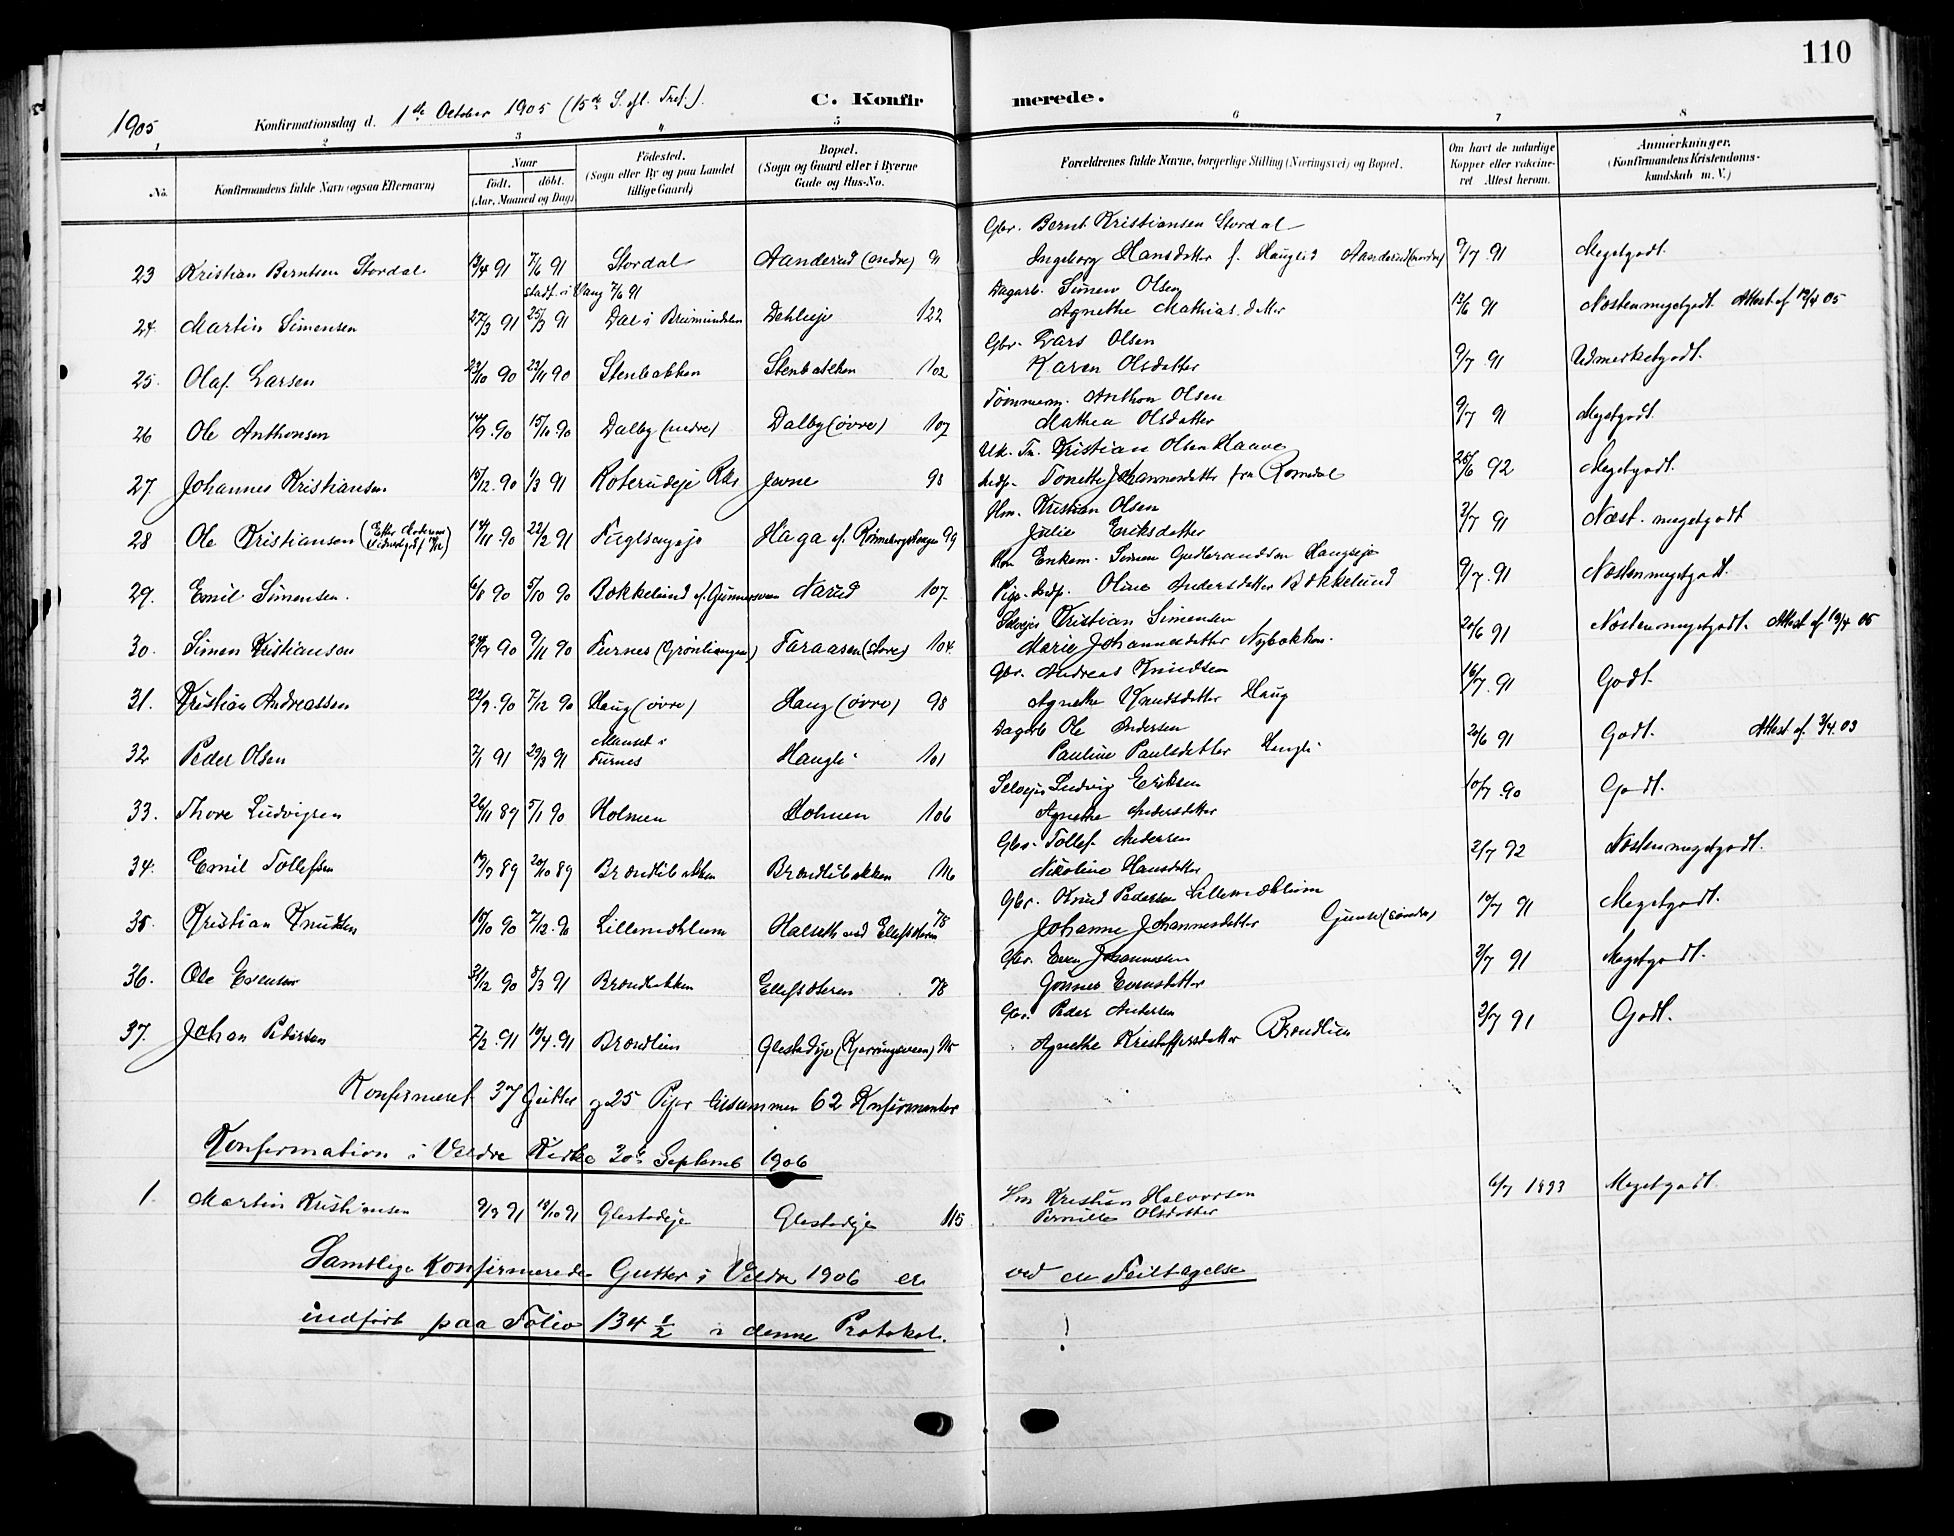 110
1905 Konfirmationsdag d. 1ste October 1905 (15de S. efl. Tref.). C. Konfirmerede.
1 2 3 4 5 6 7 8
No. Konfirmandens fulde Navn (ogsaa Efternavn) Naar født. døbt. (Aar, Maaned og Dag) Fødested. (Sogn eller By og paa Landet tillige Gaard) Bopæl. (Sogn og Gaard eller i Byerne Gade og Hus-No. Forældrenes fulde Navne, borgerlige Stilling (Næringsvei) og Bopæl. Om havt de naturlige Kopper eller vaccineret Attest herom. Anmærkninger. (Konfirmandens Kristendomskundskab m. V.)
Gbr. Bernt Kristiansen Stordal
23 Kristian Berntsen Stordal 13/4 91 7/6 91 Stordal Aanderud (nedre) 91 Ingeborg Hansdatter f. Hauglid Aanderud (nedre) 9/7 91 Megetgodt.
stadf. i Vang 7/6 91 Dagarb. Simen Olsen
24. Martin Simensen 27/3 91 25/3 91 Dal i Brumundalen Dehlieje 122 Agnethe Mathiasdatter 13/6 91 Næsten megetgodt. Attest af 19/4 05
Gbr. Lars Olsen
25. Olaf Larsen 23/10 90 23/11 90 Stenbakken Stenbakken 102 Karen Olsdatter 9/7 91 Udmerketgodt.
Tømmerm. Anthon Olsen
26 Ole Anthonsen 14/9 90 15/10 90 Dalby (nedre) Dalby (øvre) 107 Mathea Olsdatter 9/7 91 Megetgodt.
Uk. Tn. Kristian Olsen Haave
27. Johannes Kristiansen 15/12 90 1/3 91 Koterudeje Rks Jevne 98 Indp. Tonette Johannesdatter fra Romedal 25/6 92 Megetgodt.
Hm. Kristian Olsen
28 Ole Kristiansen 14/11 90 22/2 91 Fuglsangeje Haga 99 Julie Eriksdatter 2/7 91 Næst. megetgodt
Enkem. Simen Gudbrandsen Haugseje
29. Emil Simensen. 6/8 90 5/10 90 Bakkelund Narud 107. Pige Indp. Oline Andersdatter Bakkelund 9/7 91 Næsten megetgodt.
Selvejer Kristian Simensen
30. Simen Kristiansen 24/9 90 9/11 90 Furnes Faraasen (store) 104. Marie Johannesdatter Nybakken. 20/6 91 Næsten megetgodt. Attest af 19/4 05
Gbr. Andreas Knudsen
31. Kristian Andreassen 23/9 90 7/12 90 Haug (øvre) Haug (øvre) 98 Agnethe Knudsdatter Haug 16/7 91 Godt.
Dagarb Ole Andersen
32 Peder Olsen 7/1 91 29/3 91 Furnes Haugli 101 Pauline Paulsdatter Haugli 20/6 91 Godt. Attest af 3/4 03
Selvejer Ludvig Eriksen
33. Thore Ludvigsen 26/11 89 5/1 90 Holmen Holmen 106 Agnethe Andersdatter 10/7 90 Godt.
Gbr. Tollef Andersen
34. Emil Tollefsen 19/9 89 20/10 89 Brændlibakken Brændlibakken 116 Nikoline Hansdatter 2/7 92 Næsten megetgodt.
Gbr. Knud Pedersen Lillemæhlum
35. Kristian Knudsen 15/10 90 7/12 90 Lillemæhlum Halseth ved Ellefsæteren 78 Johanne Johannesdatter 10/7 91 Megetgodt.
Gbr. Even Johannesen
36. Ole Evensen 31/12 90 8/3 91 Brænbakken Ellefsæteren 78 Gonner Evensdatter 2/7 91 Megetgodt.
Gbr. Peder Andersen
37. Johan Pedersen 7/2 91 19/4 91 Brændlien Glestadeje (Kjerringsveen) 115 Agnethe Kristoffersdatter Brændlien 2/7 91 Godt.
Konfirmeret 37 Gutter og 25 Piger tilsammen 62 Konfirmanter
Konfirmation i Veldre Kirke 30te Septemb 1906
1. Martin Kristiansen 9/9 91 18/10 91 Glestadeje Glestadeje 115 Hm Kristian Halvorsen 6/7 1893 Megetgodt.
Pernille Olsdatter
Samtlige Konfirmerede Gutter i Veldre 1906 er ved en Feiltagelse
indført paa Folio 134 1/2 i denne Protokol. !